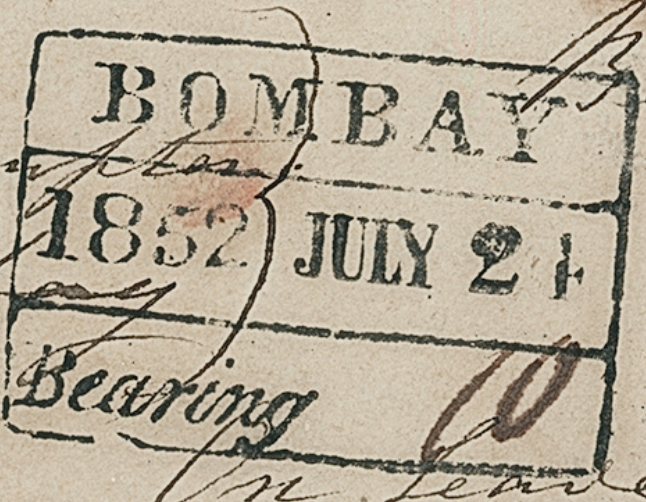 BOMBAY
1852 JULY 24
Bearing 10